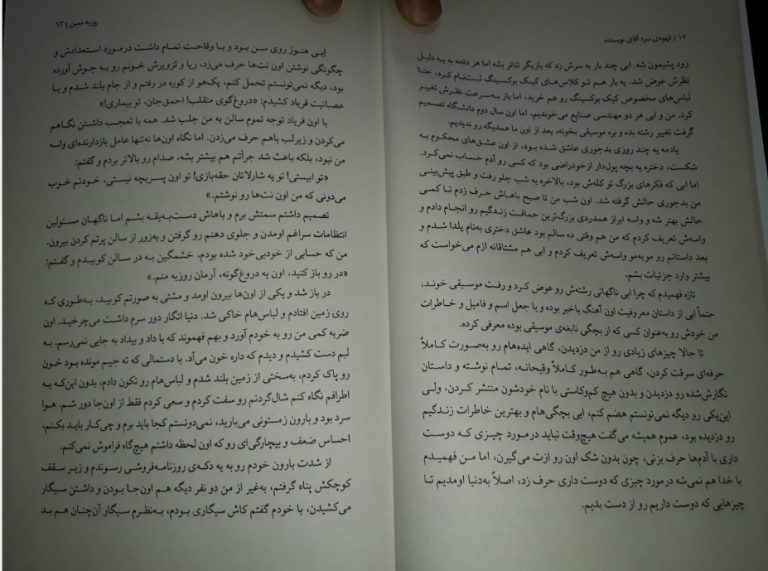 ۱۲ / قهوه‌ی سرد آقای نویسنده
زود پشیمون شه. ابی چند بار به سرش زد که بازیگر تئاتر بشه اما هر دفعه به یه دلیل
نظرش عوض شد، یه بار هم تو کلاس‌های کیک بوکسینگ ثبت‌نام کرد، حتا
لباس‌های مخصوص کیک بوکسینگ رو هم خرید، اما باز به‌سرعت نظرش تغییر
کرد. من و ابی هر دو مهندسی صنایع می‌خوندیم، اما اون سال دوم دانشگاه تصمیم
گرفت تغییر رشته بده و بره موسیقی بخونه، بعد از اون ما همدیگه رو ندیدیم.
یادمه یه چند روزی بدجوری عاشق شده بود، از اون عشق‌های محکوم به
شکست، دختره یه بچه پول‌دار ازخودراضی بود که کسی رو آدم حساب نمی‌کرد.
اما ابی که فکرهای بزرگ تو کله‌ش بود، بالاخره یه شب جلو رفت و طبق پیش‌بینی
من بدجوری حالش گرفته شد. اون شب من تا صبح باهاش حرف زدم تا کمی
حالش بهتر شه و واسه ابراز همدردی بزرگ‌ترین حماقت زندگیم رو انجام دادم و
واسه‌ش تعریف کردم که من هم وقتی ده سالم بود عاشق دختری به‌نام یلدا شدم و
بعد داستانم رو موبه‌مو واسه‌ش تعریف کردم و ابی هم مشتاقانه ازم می‌خواست که
بیشتر وارد جزئیات بشم.
تازه فهمیدم که چرا ابی ناگهانی رشته‌ش رو عوض کرد و رفت موسیقی خوند،
حتماً ابی از داستان معروفیت اون آهنگ باخبر بوده و با جعل اسم و فامیل و خاطرات
من خودش رو به‌عنوان کسی که از بچگی نابغه‌ی موسیقی بوده معرفی کرده.
تا حالا چیزهای زیادی رو از من دزدیدن، گاهی ایده‌هام رو به‌صورت کاملاً
حرفه‌ای سرقت کردن، گاهی هم به‌طور کاملاً وقیحانه، تمام نوشته و داستان
نگارش‌شده رو دزدیدن و بدون هیچ کم‌وکاستی با نام خودشون منتشر کردن، ولی
این‌یکی رو دیگه نمی‌تونستم هضم کنم، ابی بچگی‌هام و بهترین خاطرات زندگیم
رو دزدیده بود، عموم همیشه می‌گفت هیچ‌وقت نباید درمورد چیزی که دوست
داری با آدم‌ها حرف بزنی، چون بدون شک اون رو ازت می‌گیرن، اما من فهمیدم
با خدا هم نمی‌شه درمورد چیزی که دوست داری حرف زد، اصلاً به‌دنیا اومدیم تا
چیزهایی که دوست داریم رو از دست بدیم.
روزبه معین / ۱۳
اِبی هنوز روی سن بود و با وقاحت تمام داشت درمورد استعدادش و
چگونگی نوشتن اون نت‌ها حرف می‌زد، ریا و تزویرش خونم رو به جوش آورده
بود، دیگه نمی‌تونستم تحمل کنم، یک‌هو از کوره در رفتم و از جام بلند شدم و با
عصبانیت فریاد کشیدم: «دروغ‌گوی متقلب! احمق‌جان، تو بیماری!»
با اون فریاد توجه تموم سالن به من جلب شد. همه با تعجب داشتن نگاهم
می‌کردن و زیرلب باهم حرف می‌زدن. اما نگاه اون‌ها نه‌تنها عامل بازدارنده‌ای واسه
من نبود، بلکه باعث شد جرأتم هم بیشتر بشه، صدام رو بالاتر بردم و گفتم:
«تو ابیستی! تو یه شارلاتان حقه‌بازی! تو اون پسربچه نیستی، خودتم خوب
می‌دونی که من اون نت‌ها رو نوشتم.»
تصمیم داشتم سمتش برم و باهاش دست‌به‌یقه بشم اما ناگهان مسئولین
انتظامات سراغم اومدن و جلوی دهنم رو گرفتن و به‌زور از سالن پرتم کردن بیرون.
من که حسابی از خودبی‌خود شده بودم، خشمگین به در سالن کوبیدم و گفتم:
«در رو باز کنید، اون یه دروغ‌گوئه، آرمان روزبه منم.»
در باز شد و یکی از اون‌ها بیرون اومد و مشتی به صورتم کوبید، به‌طوری که
روی زمین افتادم و لباس‌هام خاکی شد. دنیا انگار دور سرم داشت می‌چرخید. اون
ضربه کمی من رو به خودم آورد و بهم فهموند که با داد و بیداد به جایی نمی‌رسم. به
لبم دست کشیدم و دیدم که داره خون می‌آد. با دستمالی که ته جیبم مونده بود خون
رو پاک کردم، به‌سختی از زمین بلند شدم و لباس‌هام رو تکون دادم، بدون این‌که به
اطرافم نگاه کنم شال‌گردنم رو سفت کردم و سعی کردم فقط از اون‌جا دور شم. هوا
سرد بود و بارون زمستونی می‌بارید، نمی‌دونستم کجا باید برم و چی‌کار باید بکنم،
احساس ضعف و بیچارگی‌ای رو که اون لحظه داشتم هیچ‌گاه فراموش نمی‌کنم.
از شدت بارون خودم رو به یه دکه‌ی روزنامه‌فروشی رسوندم و زیر سقف
کوچکش پناه گرفتم، به‌غیر از من دو نفر دیگه هم اون‌جا بودن و داشتن سیگار
می‌کشیدن، با خودم گفتم کاش سیگاری بودم، به‌نظرم سیگار آن‌چنان هم بد